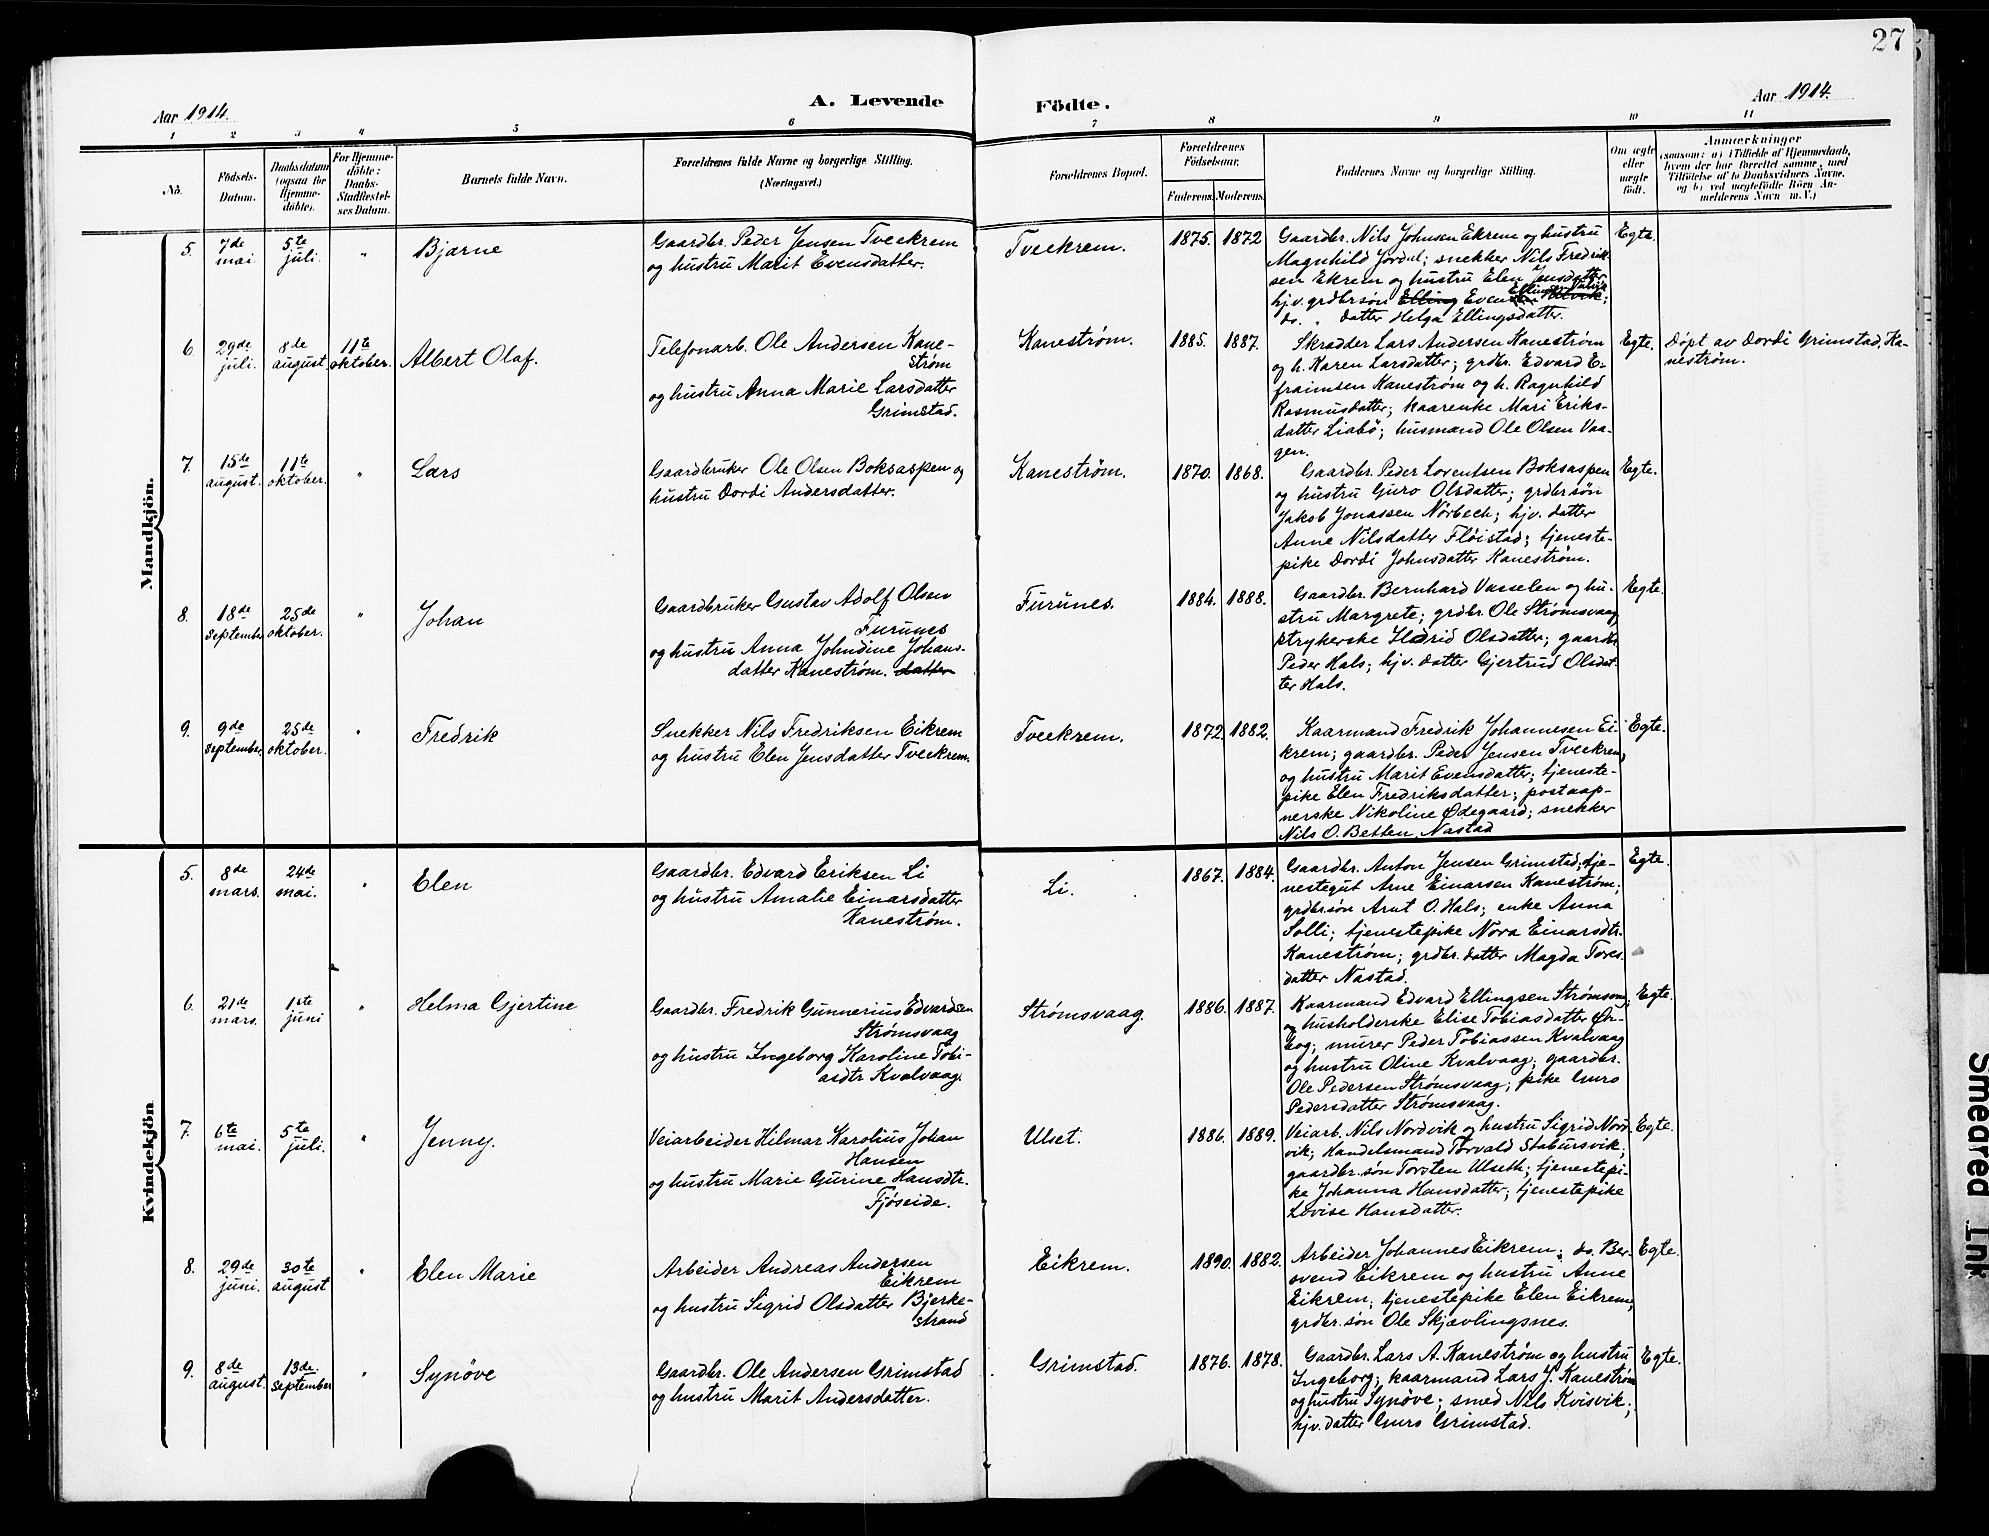 27
Aar 1914.
A. Levende Födte.
Aar 1914.
1 2 3 4 5 6 7 8 9 10 11
No.
Födsels-
Datum.
Daabsdatum
(ogsaa for
Hjemme-
döbte).
For Hjemme-
döbte:
Daabs-
Stadfæstel-
ses Datum.
Barnets fulde Navn.
Forældrenes fulde Navne og borgerlige Stilling.
(Næringsvei.)
Forældrenes Bopæl.
Forældrenes
Födselsaar.
Faderens. Moderens.
Faddernes Navne og borgerlige Stilling.
Om ægte
eller
uægte
födt.
Anmærkninger
(saasom: a) i Tilfælde af Hjemmedaab,
hvem der har forrettet samme, med
Tilföielse af to Daabsvidners Navne,
og b) ved uægtefödte Börn An-
melderens Navn m. V.)
Mandkjön.
5.
7de
mai.
5te
juli.
"
Bjarne
Gaardbr. Peder Jensen Tveekrem
og hustru Marit Evensdatter.
Tveekrem.
1875. 1872
Gaardbr. Nils Johnsen Ekrem og hustru
Magnhild Jordal; snekker Nils Fredrik-
sen Ekrem og hustru Elen Jensdatter
hjv. grdbr søn Elling Even
do. " datter Helga Ellingsdatter.
Egte.
6.
29de
juli.
8de
august.
11te
oktober.
Albert Olaf.
Telefonarb. Ole Andersen Kane-
strøm
og hustru Anna Marie Larsdatter
Grimstad.
Kanestrøm.
1885. 1887.
Skrædder Lars Andersen Kanestrøm
og h. Karen Larsdatter; grdbr. Edvard E-
fraimsen Kanestrøm og h. Ragnhild
Rasmusdatter; kaarenke Mari Eriks-
datter Liabö; husmand Ole Olsen Vaa-
gen.
Egte.
Döpt av Dordi Grimstad, Ka-
neström.
7.
15de
august.
11te
oktober.
"
Lars
Gaardbruker Ole Olsen Boksaspen og
hustru Dordi Andersdatter.
Kanestrøm.
1870. 1868.
Gaardbr. Peder Lorentsen Boksaspen
og hustru Guro Olsdatter; grdbr søn
Jakob Jonassen Nørbech; hjv. datter
Anne Nilsdatter Fløistad; tjeneste-
pike Dordi Johnsdatter Kanestrøm.
Egte.
8.
18de
september
25de
oktober.
"
Johan
Gaardbruker Gustav Adolf Olsen
Furunes
og hustru Anna Johndine Johans-
datter Kanestrøm. datter
Furunes.
1884. 1888.
Gaardbr. Bernhard Vasselen og hu-
stru Margrete; grdbr. Ole Strømsvaag
strykerske Ildrid Olsdatter; gaardbr
Peder Hals; hjv. datter Gjertrud Olsdat-
ter Hals.
Egte.
9.
9de
september.
25de
oktober.
"
Fredrik
Snekker Nils Fredriksen Eikrem
og hustru Elen Jensdatter Tveekrem.
Tveekrem.
1872. 1882.
Kaarmand Fredrik Johannesen Ei-
krem; gaardbr. Peder Jensen Tveekrem,
og hustru Marit Evensdatter; tjeneste-
pike Elen Fredriksdatter; postaap-
nerske Nikoline Ødegaard; snekker
Nils O. Betten, Nastad
Egte.
Kvindekjön
5.
8de
mars.
24de
mai.
"
Elen
Gaardbr. Edvard Eriksen Li
og hustru Amalie Einarsdatter
Kanestrøm.
Li.
1867. 1884.
Gaardbr. Anton Jensen Grimstad; tje-
nestegut Arne Einarsen Kanestrøm;
grdbr.søn Arnt O. Hals; enke Anna
Solli; tjenestepike Nora Einarsdtr.
Kanestrøm; grdbr. datter Magda Tores-
datter Nastad.
Egte.
6.
21de
mars.
1ste
juni
"
Helma Gjertine
Gaardbr. Fredrik Gunnerius Edvardsen
Strømsvaag
og hustru Ingeborg Karoline Tobi-
asdtr Kvalvaag.
Strømsvaag.
1886. 1887.
Kaarmand Edvard Ellingsen Strømsvaag;
og husholderske Elise Tobiasdatter Ør-
bog; murer Peder Tobiassen Kvalvaag
og hustru Oline Kvalvaag; gaardbr.
Ole Pedersen Strømsvaag; pike Guro
Pedersdatter Strømsvaag.
Egte.
7.
6te
mai.
5te
juli.
"
Jenny.
Veiarbeider Hilmar Karolius Johan
Hansen
og hustru Marie Gurine Hansdtr.
Fjöseide.
Ulset.
1886. 1889.
Veiarb. Nils Nordvik og hustru Sigrid Nord-
vik; Handelsmand Torvald Stabursvik;
gaardbr. søn Torsten Ulseth; tjenestepi-
ke Johanna Hansdatter; tjenestepike
Lovise Hansdatter.
Egte.
8.
29de
juni.
30te
august
"
Elen Marie
Arbeider Andreas Andersen
Eikrem
og hustru Sigrid Olsdatter Bjerke-
strand
Eikrem.
1890. 1882.
Arbeider Johannes Eikrem; do. Ber-
ovend Eikrem og hustru Anne
Eikrem; tjenestepike Elen Eikrem;
grdbr. søn Ole Skjævlingsnes.
Egte.
9.
8de
august.
13de.
september
"
Synöve
Gaardbr. Ole Andersen Grimstad
og hustru Marit Andersdatter.
Grimstad.
1876. 1878.
Gaardbr. Lars A. Kanestrøm og hustru
Ingeborg; kaarmand Lars J. Kanestrøm
og hustru Synöve; smed Nils Kvisvik;
hjv. datter Guro Grimstad.
Egte.
Smeared Ink